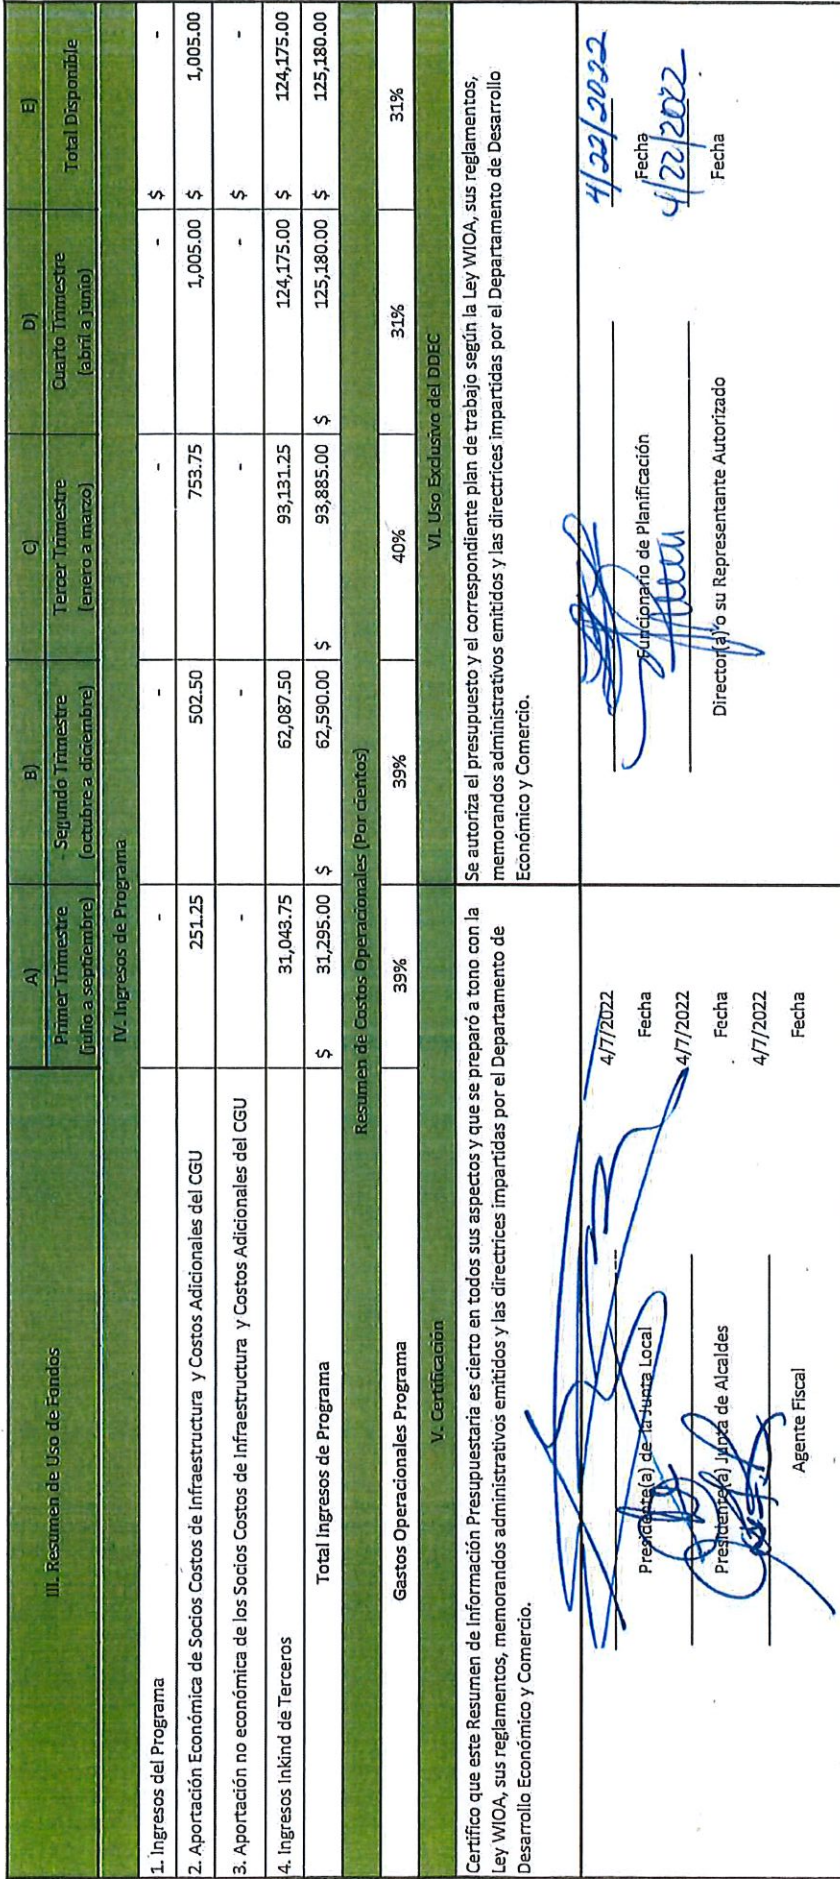 III. Resumen de Uso de Fondos
A)
Primer Trimestre
(julio a septiembre)
B)
Segundo Trimestre
(octubre a diciembre)
C)
Tercer Trimestre
(enero a marzo)
D)
Cuarto Trimestre
(abril a junio)
E)
Total Disponible
IV. Ingresos de Programa
1. Ingresos del Programa - - - - $ -
2. Aportación Económica de Socios Costos de Infraestructura y Costos Adicionales del CGU 251.25 502.50 753.75 1,005.00 $ 1,005.00
3. Aportación no económica de los Socios Costos de Infraestructura y Costos Adicionales del CGU - - - - $ -
4. Ingresos Inkind de Terceros 31,043.75 62,087.50 93,131.25 124,175.00 $ 124,175.00
Total Ingresos de Programa $ 31,295.00 $ 62,590.00 $ 93,885.00 $ 125,180.00 $ 125,180.00
Resumen de Costos Operacionales (Por cientos)
Gastos Operacionales Programa 39% 39% 40% 31% 31%
V. Certificación
Certifico que este Resumen de Información Presupuestaria es cierto en todos sus aspectos y que se preparó a tono con la
Ley WIOA, sus reglamentos, memorandos administrativos emitidos y las directrices impartidas por el Departamento de
Desarrollo Económico y Comercio.
4/7/2022
Presidente(a) de la Junta Local Fecha
4/7/2022
Presidente(a) Junta de Alcaldes Fecha
4/7/2022
Agente Fiscal Fecha
VI. Uso Exclusivo del DDEC
Se autoriza el presupuesto y el correspondiente plan de trabajo según la Ley WIOA, sus reglamentos,
memorandos administrativos emitidos y las directrices impartidas por el Departamento de Desarrollo
Económico y Comercio.
4/22/2022
Funcionario de Planificación Fecha
4/22/2022
Director(a) o su Representante Autorizado Fecha